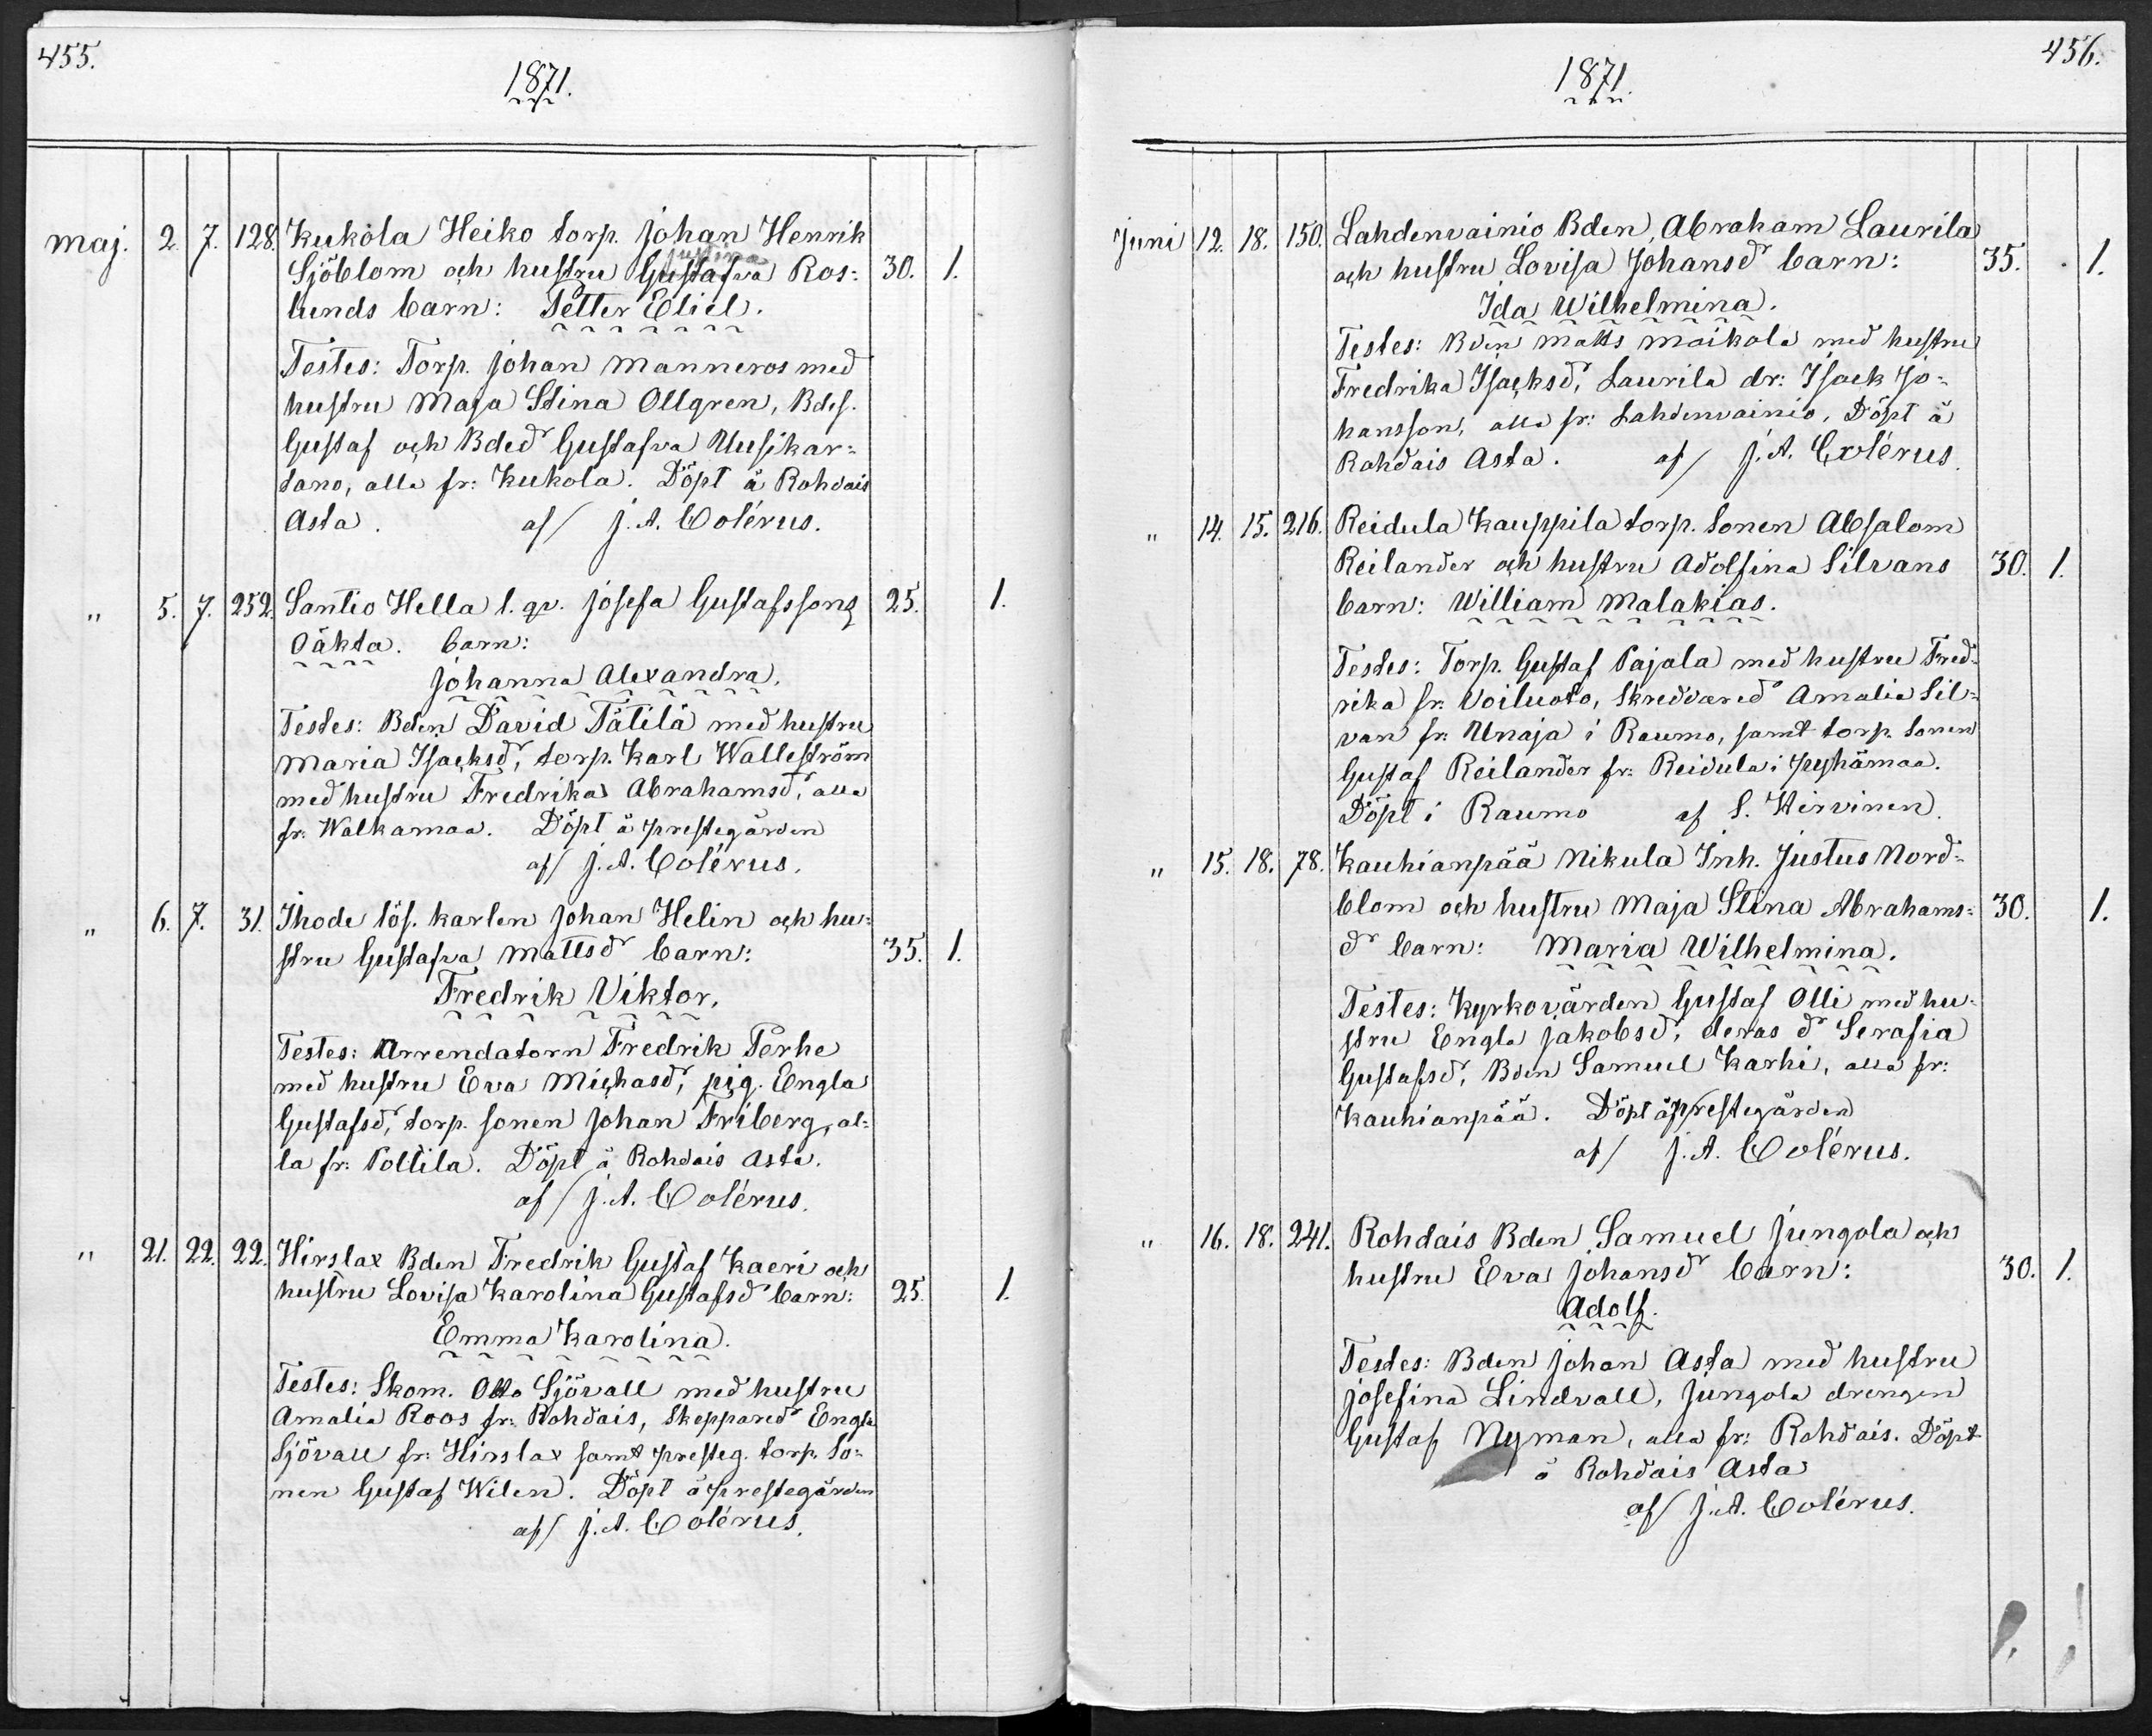 455.
1871.
Maj. 2. 7. 128. Kukola Heiko torp. Johan Henrik
Justina
Sjöblom och hustru Gustafva Ros= 30. 1.
lunds barn: Petter Eliel.
Testes: Torp. Johan Manneros med
hustru Maja Stina Ollgren, Bdes.
Gustaf och Bded.r Gustafva Uusikar=
tano, alla fr: Kukola. Döpt å Rohdais
Asta. af/ J. A. Colérus.
" 5. 7. 252. Santio Hella l. qv. Josefa Gustafssons 25. 1.
oäkta. barn:
Johanna Alexandra.
Testes: Bden David Tätilä med hustru
Maria Isacksd.r, torp. Karl Walleström
med hustru Fredrika Abrahamsd.r, alla
fr: Walkamaa. Döpt å prestegården
af/ J. A. Colérus.
" 6. 7. 31. Ihode lös. karlen Johan Helin och hu=
stru Gustafva Mattsd.r barn: 35. 1.
Fredrik Viktor.
Testes: Arrendatorn Fredrik Perhe
med hustru Eva Michasd.r, pig. Engla
Gustafsd.r, torp. sonen Johan Friberg, al=
la fr: Pollila. Döpt å Rohdais Asta.
af/ J. A. Colérus.
" 21. 22. 22. Hirslax Bden Fredrik Gustaf Kaeri och
hustru Lovisa Karolina Gustafsd.r barn: 25. 1.
Emma Karolina.
Testes: Skom. Otto Sjövall med hustru
Amalia Roos fr: Rohdais, Skeppared.r Engla
Sjövall fr: Hirslax samt presteg. torp. So=
nen Gustaf Wilen. Döpt å prestegården
af/ J. A. Colérus.
456.
1871.
Juni 12. 18. 150. Lahdenvainio Bden, Abraham Laurila
och hustru Lovisa Johansd.r barn: 35. 1.
Ida Wilhelmina.
Testes: Bden Matts Maikola med hustru
Fredrika Isacksd.r, Laurila dr: Isack Jo=
hansson, alla fr: Lahdenvainio. Döpt å
Rohdais Asta. af/ J. A. Colérus.
" 14. 15. 216. Reidula Kauppila torp. Sonen Absalom
Reilander och hustru Adolfina Silvans 30. 1.
barn: William Malakias.
Testes: Torp. Gustaf Pajala med hustru Fred=
rika fr: Voiluoto, Skreddared.r Amalia Sil=
van fr: Unaja i Raumo, samt torp. Sonen
Gustaf Reilander fr: Reidula i Pyhämaa.
Döpt i Raumo af S. Hirvinen.
" 15. 18. 78. Kauhianpää Nikula Inh. Justus Nord=
blom och hustru Maja Stina Abrahams= 30. 1.
d.r barn: Maria Wilhelmina.
Testes: Kyrkovärden Gustaf Olli med hu=
stru Engla Jakobsd.r, deras d.r Serafia
Gustafsd.r, Bden Samuel Karhi, alla fr:
Kauhianpää. Döpt å prestegården
af/ J. A. Colérus.
" 16. 18. 241. Rohdais Bden Samuel Jungola och
hustru Eva Johansd.r barn: 30. 1.
Adolf.
Testes: Bden Johan Asta med hustru
Josefina Lindvall, Jungola drengen
Gustaf Nyman, alla fr: Rohdais. Döpt
å Rohdais Asta
af/ J. A. Colérus.